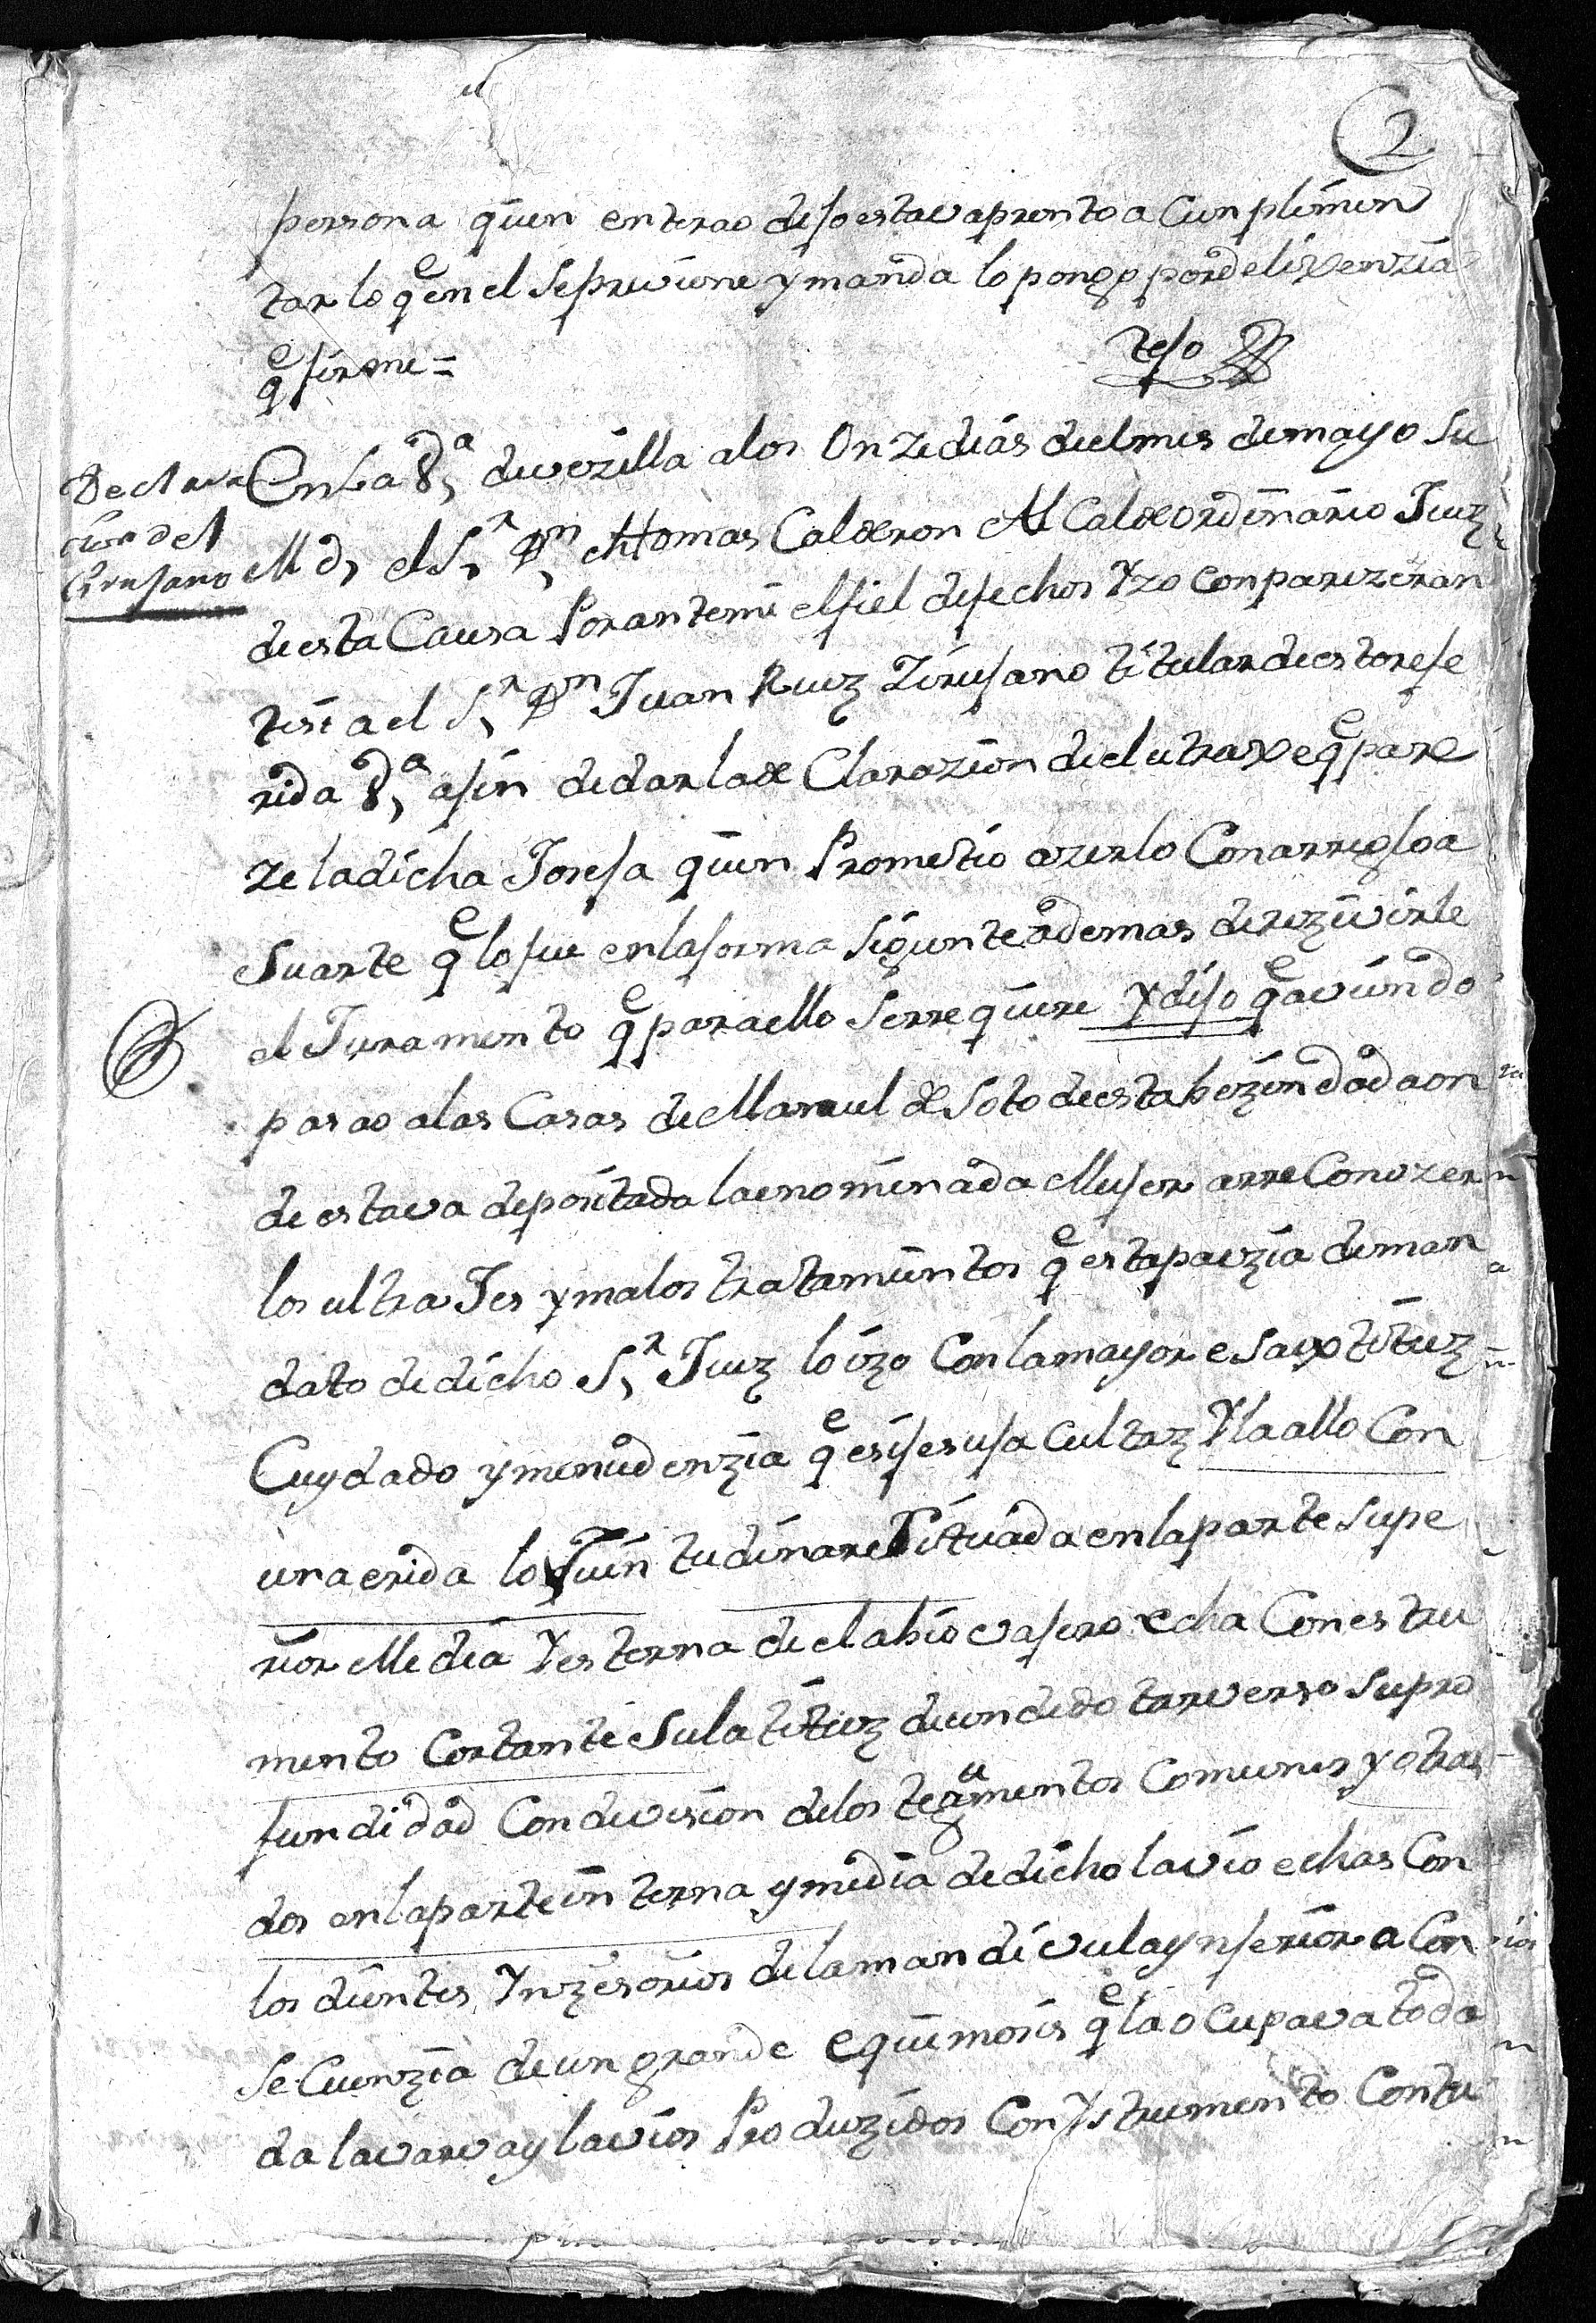 2
persona quien enterao dijo estava pronto a Cunplimen
tar lo qe en el se previene y manda lo pongo por delixenzia
qe firme =
Declara
cion del
Cirujano
En la Va de vezilla a los Onze dias del mes de mayo su
Md, el Sr Dn Thomas Calderon Alcalde ordinario Juez
de esta Causa Por ante mi el fiel de fechos Yzo conparezer an
tesi a el Sr Dn Juan Ruiz Zirujano titular de esta refe
rida Va a fin de dar la de Clarazion del utraxe qe pare
ze la dicha Josefa quien Prometio azerlo Con arreglo a
su arte qe lo fue en la forma siguiente ademas de rezivirle
el Juramento qe para ello se rrequiere Y dijo qe aviendo
pasao a las Casas de Manuel de Soto de esta bezindad aon
de estava depositada la enominada Mujer a rreConozer
los ultraJes y malos tratamientos qe esta paezia de man
dato de dicho Sr Juez lo izo Con la mayor esaxtituz
Cuydado y menudenzia qe esije su facultaz Y la allo Con
una erida lonjitudinare situada en la parte supe
rior Media Y esterna del abio vajero echa Con estru
mento Cortante su latituz de un dedo tarverso su pro
fundidad Con division de los tegumentos Comunes y otras
dos en la parte interna y media de dicho lavio echas Con
los dientes Ynzesorios de la mandivula ynferior a Con
secuenzia de un grande equimosis qe la ocupava toda
da la varva y lavios Produzidos Con Ystrumento Contu